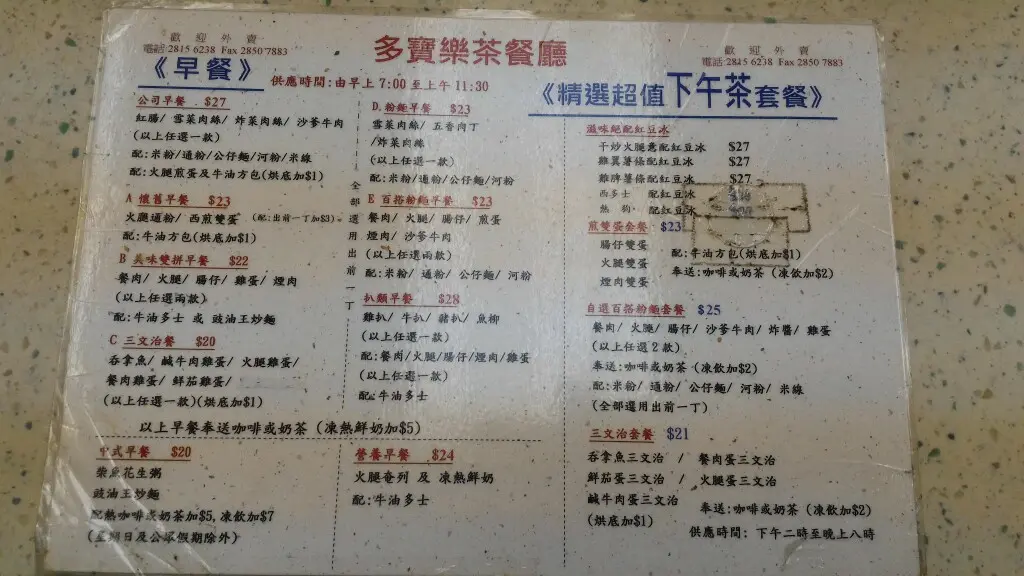 歡迎外賣
電話:2815 6238 Fax 2850 7883
多寶樂茶餐廳
歡迎外賣
電話:2815 6238 Fax 2850 7883
《早餐》
供應時間:由早上 7:00 至上午 11:30
公司早餐 $27
紅腸/ 雪菜肉絲/ 炸菜肉絲/ 沙爹牛肉
(以上任選一款)
配:米粉/通粉/公仔麵/河粉/米線
配:火腿煎蛋及牛油方包(烘底加$1)
A 懷舊早餐 $23
火腿通粉/ 西煎雙蛋 (配:出前一丁加$3)
配:牛油方包(烘底加$1)
B 美味雙拼早餐 $22
餐肉/ 火腿/ 腸仔/ 雞蛋/ 煙肉
(以上任選兩款)
配:牛油多士 或 豉油王炒麵
C 三文治餐 $20
吞拿魚/ 鹹牛肉雞蛋/ 火腿雞蛋/
餐肉雞蛋/ 鮮茄雞蛋/
(以上任選一款)(烘底加$1)
D. 粉麵早餐 $23
雪菜肉絲/ 五香肉丁
/炸菜肉絲
(以上任選一款)
配:米粉/通粉/公仔麵/河粉
E 百搭粉麵早餐 $23
餐肉/ 火腿/ 腸仔/ 煎蛋
煙肉/ 沙爹牛肉
(以上任選兩款)
配:米粉/ 通粉/ 公仔麵/ 河粉
扒類早餐 $28
雞扒/ 牛扒/ 豬扒/ 魚柳
(以上任選一款)
配:餐肉/火腿/腸仔/煙肉/雞蛋
(以上任選一款)
配:牛油多士
全部選用出前一丁
以上早餐奉送咖啡或奶茶 (凍熱鮮奶加$5)
中式早餐 $20
柴魚花生粥
豉油王炒麵
配熱咖啡或奶茶加$5, 凍飲加$7
(星期日及公眾假期除外)
營養早餐 $24
火腿奄列 及 凍熱鮮奶
配:牛油多士
《精選超值下午茶套餐》
滋味絕配紅豆冰
干炒火腿意配紅豆冰 $27
雞翼薯條配紅豆冰 $27
雞脾薯條配紅豆冰 $27
西多士 配紅豆冰
熱狗 配紅豆冰
煎雙蛋套餐 $23
腸仔雙蛋
火腿雙蛋
煙肉雙蛋
配:牛油方包(烘底加$1)
奉送:咖啡或奶茶 (凍飲加$2)
自選百搭粉麵套餐 $25
餐肉/ 火腿/ 腸仔/ 沙爹牛肉/ 炸醬/ 雞蛋
(以上任選2款)
奉送:咖啡或奶茶 (凍飲加$2)
配:米粉/ 通粉/ 公仔麵/ 河粉/ 米線
(全部選用出前一丁)
三文治套餐 $21
吞拿魚三文治 / 餐肉蛋三文治
鮮茄蛋三文治 / 火腿蛋三文治
鹹牛肉蛋三文治
(烘底加$1)
奉送:咖啡或奶茶 (凍飲加$2)
供應時間: 下午二時至晚上八時